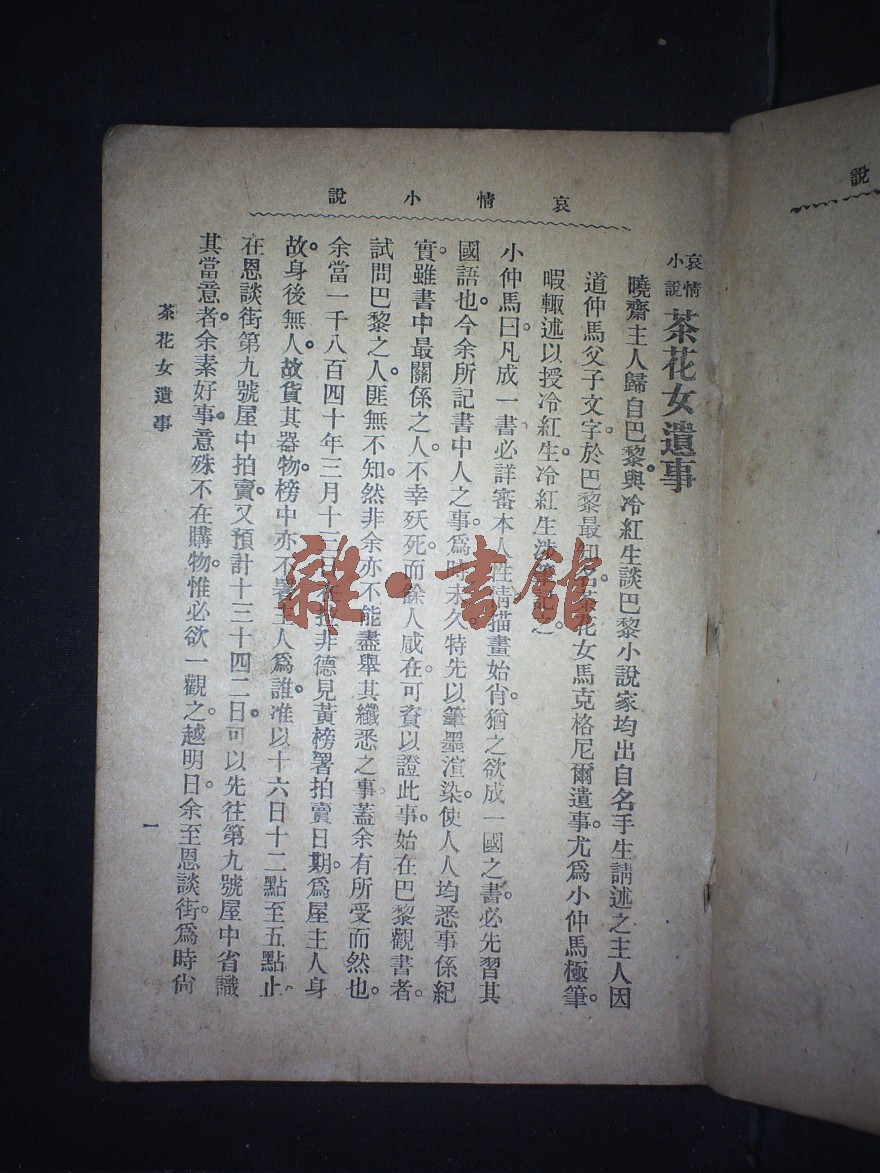 哀情小說
說
哀情小說 茶花女遺事
曉齋主人歸自巴黎。與冷紅生談巴黎小說家均出自名手生請述之主人因
道仲馬父子文字於巴黎最知名。茶花女馬克格尼爾遺事。尤爲小仲馬極筆。
暇輙述以授冷紅生。冷紅生涉筆記之
小仲馬曰。凡成一書。必詳審本人性情描畫始肖。猶之欲成一國之書。必先習其
國語也。今余所記書中人之事。爲時未久。特先以筆墨渲染。使人人均悉事係紀
實。雖書中最關係之人。不幸殀死。而餘人咸在。可資以證此事。始在巴黎觀書者。
試問巴黎之人。匪無不知。然非余亦不能盡舉其纖悉之事。蓋余有所受而然也。
余當一千八百四十年三月十三日在拉非德見黃榜署拍賣日期。爲屋主人身
故。身後無人。故貨其器物。榜中亦不署主人爲誰。准以十六日十二點至五點止。
在恩談街第九號屋中拍賣。又預計十三十四二日。可以先往第九號屋中省識
其當意者。余素好事。意殊不在購物。惟必欲一觀之。越明日。余至恩談街。爲時尙
茶花女遺事
一
雜·書館